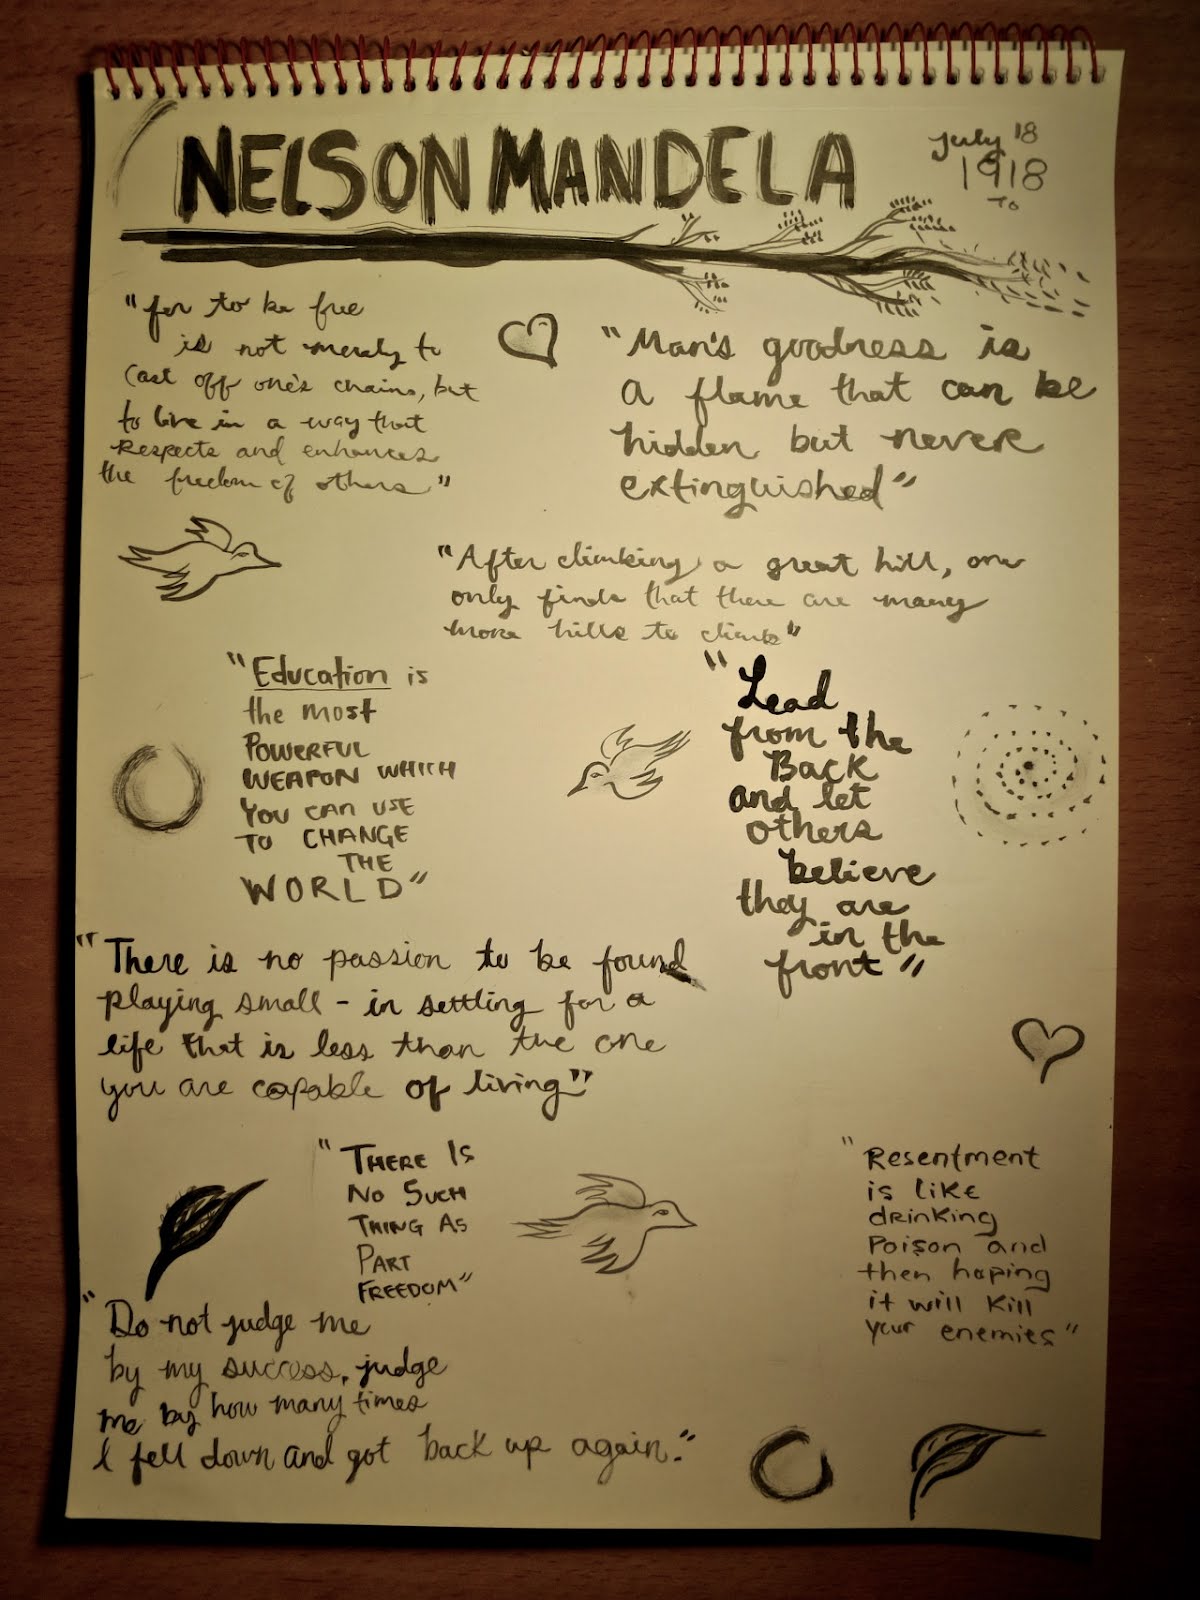 NELSON MANDELA
July 18
1918
To
"for to be free
is not merely to
cast off one's chains, but
to live in a way that
respects and enhances
the freedom of others"
"Man's goodness is
a flame that can be
hidden but never
extinguished"
"After climbing a great hill, one
only finds that there are many
more hills to climb"
"Education is
the most
POWERFUL
WEAPON WHICH
YOU CAN USE
TO CHANGE
THE
WORLD"
"Lead
from the
Back
and let
others
believe
they are
in the
front"
"There is no passion to be found
playing small - in settling for a
life that is less than the one
you are capable of living"
"THERE IS
NO SUCH
THING AS
PART
FREEDOM"
"Resentment
is like
drinking
Poison and
then hoping
it will kill
your enemies"
"Do not judge me
by my success, judge
me by how many times
I fell down and got back up again."